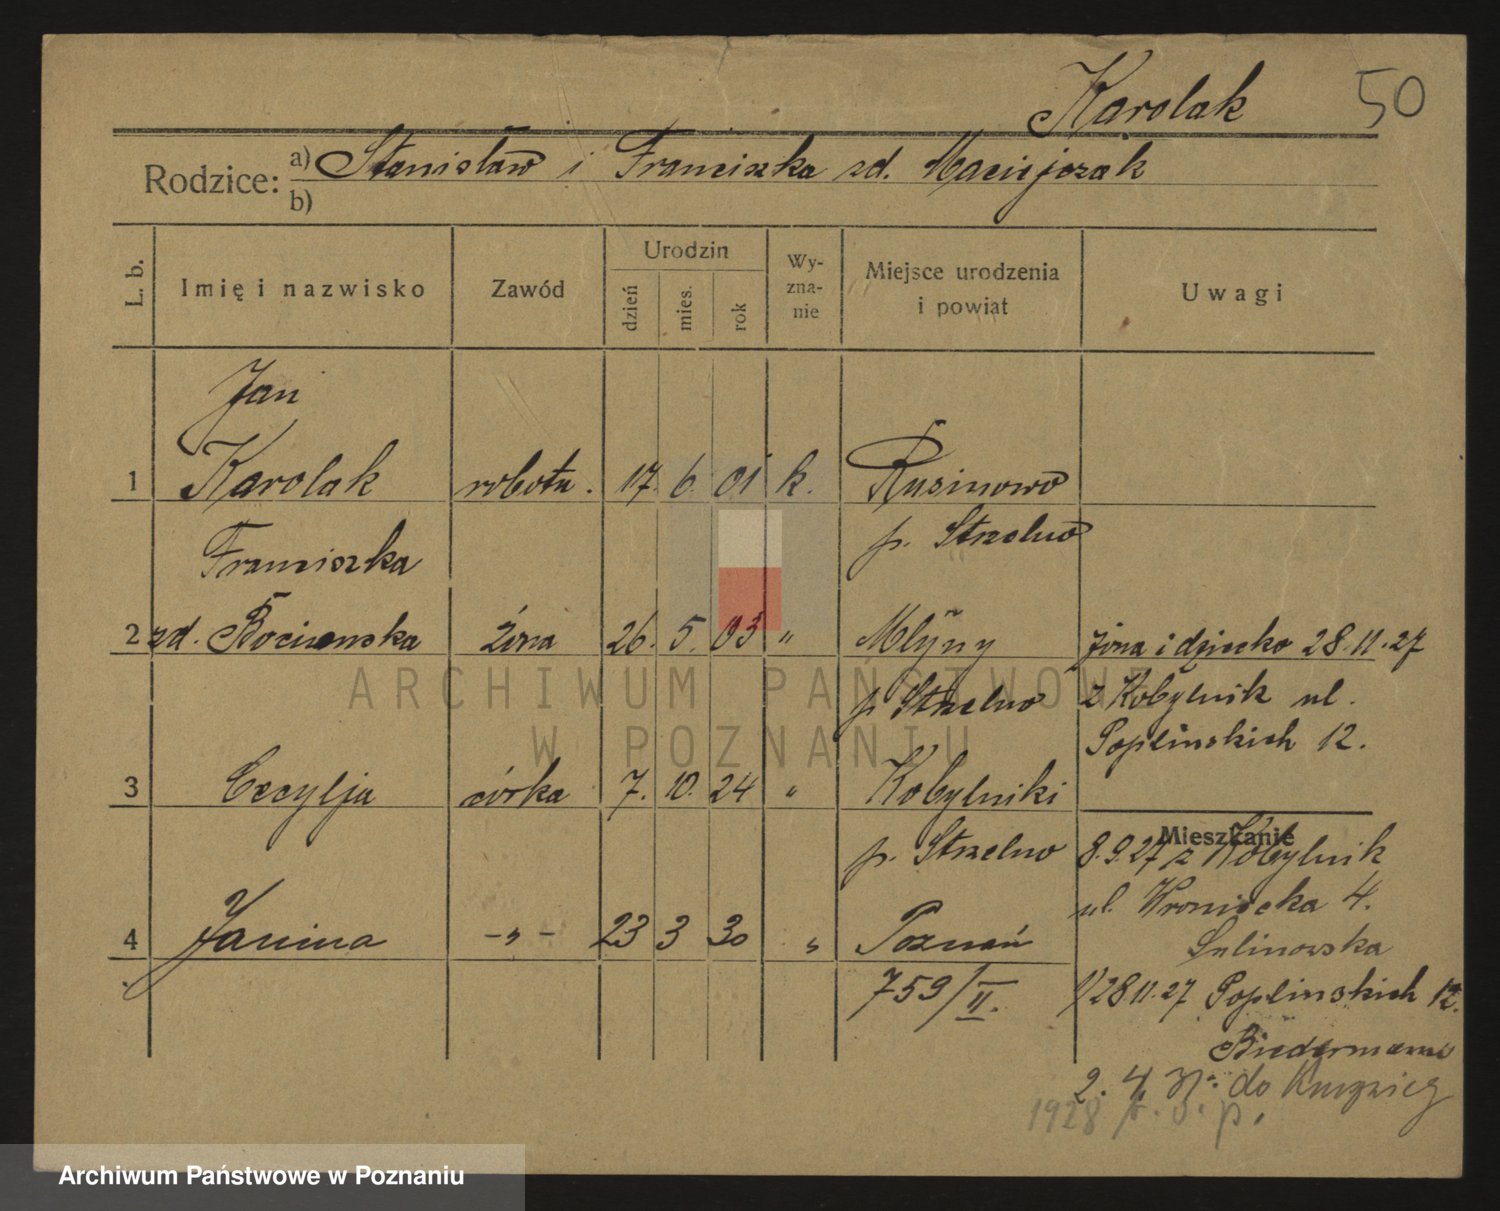 Karolak 50
Rodzice: a) Stanisław i Franciszka zd. Maciejczak
b)
L. b. Imię i nazwisko Zawód Urodzin dzień mies. rok Wyznanie Miejsce urodzenia i powiat Uwagi
Jan
1 Karolak robotn. 17. 6. 01 k. Rusinowo
p. Strzelno
Franciszka
2 zd. Bocianska żona 26. 5. 03 " Młyny żona i dziecko 28.11.27
p. Strzelno z Kobylnik ul.
Poplinskich 12.
3 Cecylja córka 7. 10. 24 " Kobylniki
Mieszkanie
p. Strzelno 8.9.27 z Kobylnik
ul. Wroniecka 4.
4 Janina -„- 23 3 30 „ Poznań
Sulinowska
759/II. 1/28.11.27 Poplinskich 12.
Biedermann
2. 4. do
1928
ARCHIWUM PAŃSTWOWE
W POZNANIU
Archiwum Państwowe w Poznaniu